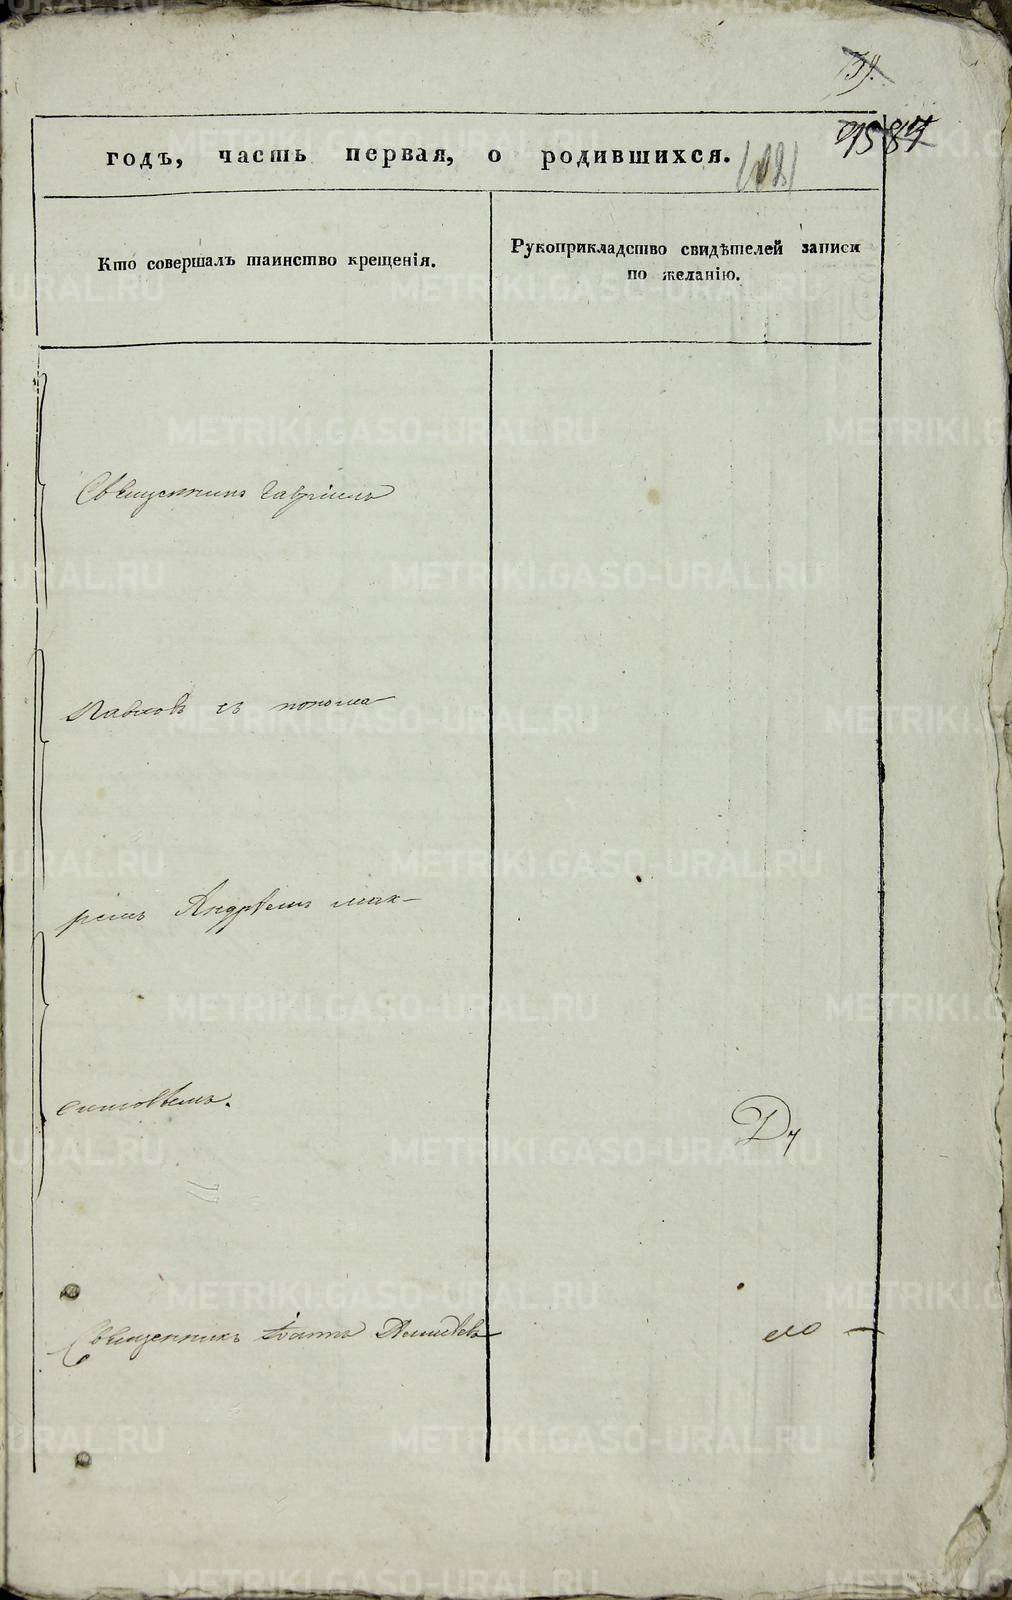 39.
95 84
годъ, часть первая, о родившихся.
Кто совершалъ таинство крещенія.
Рукоприкладство свидѣтелей записи по желанію.
Священникъ Гавріилъ
съ понома
ремъ Андреемъ Мак-
Ду
Священникъ Іоаннъ
METRIKI.GASO-URAL.RU